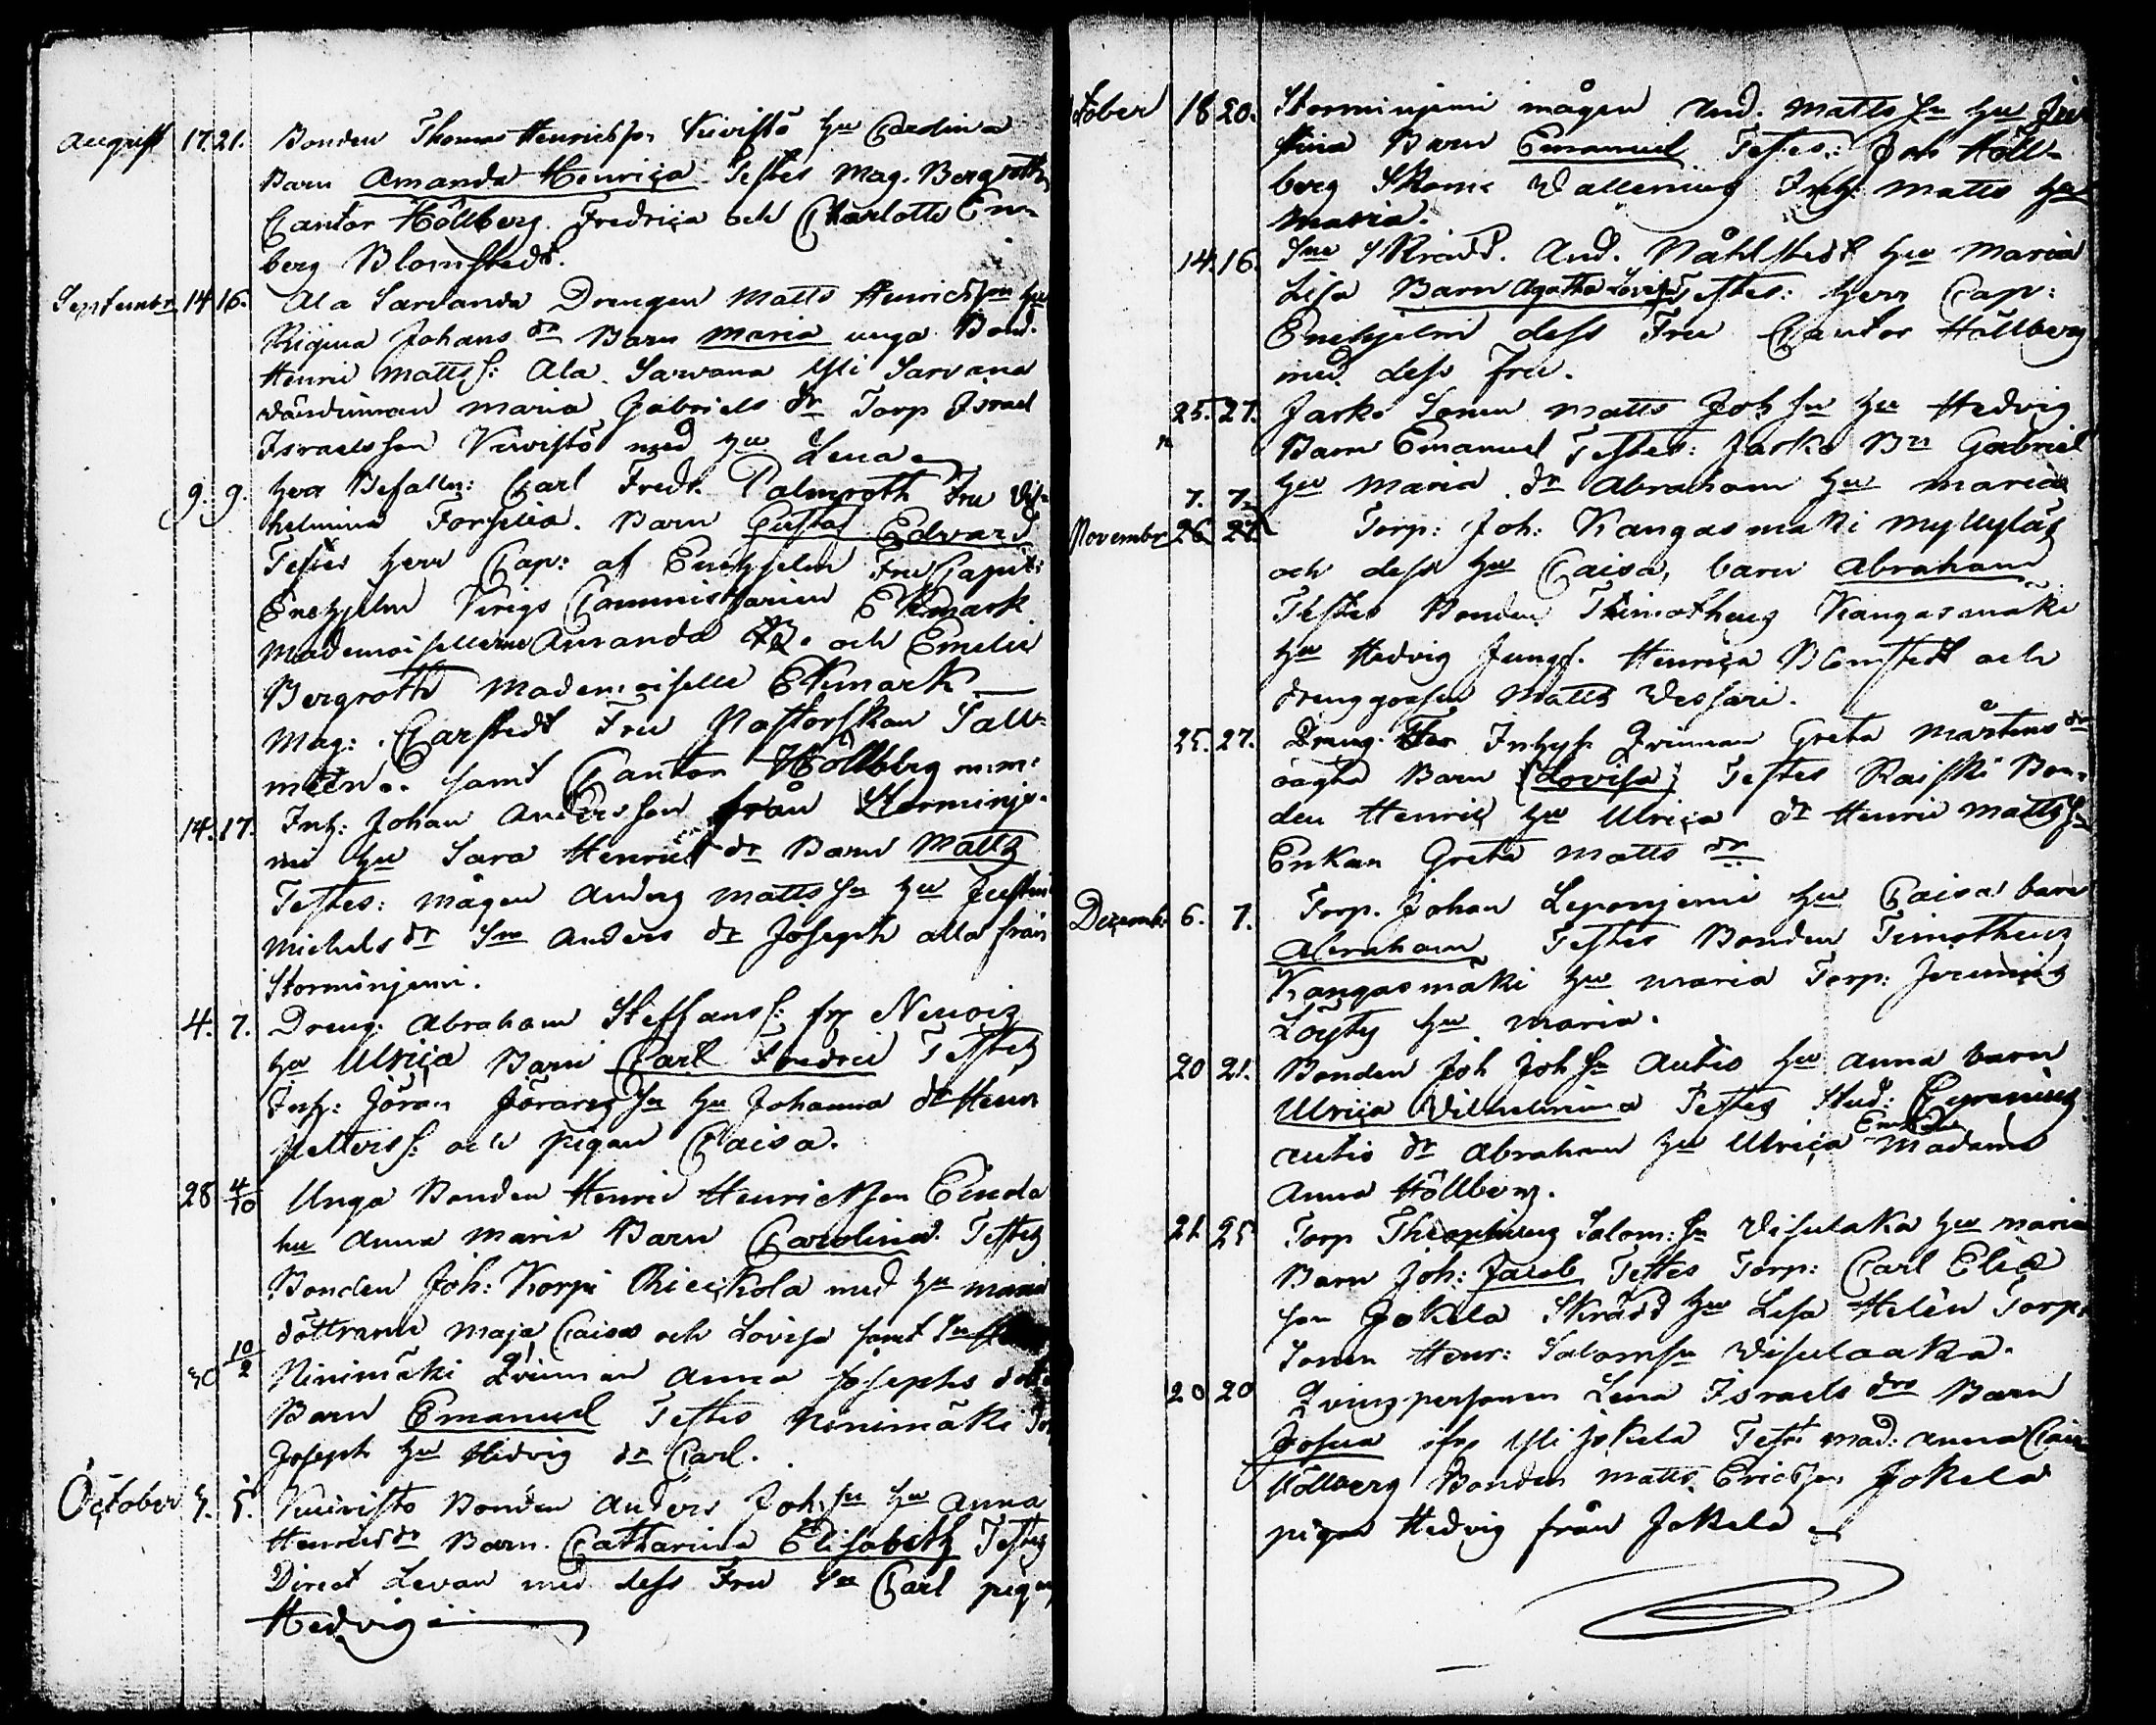 Augusti 17. 21. Bonden Thomas Henricksson Kuvistö hu Carolina
Barn Amanda Henrica Testes Mag. Bergroth
Cantor Höllberg. Fredrica och Charlotte En-
berg Blomstedt.
Septembr 14 16. Ala Sarvanda Drengen Matts Henricksson hu
Regina Johans dr Barn Maria unga Bond.
Henric Mattss: Ala Sarvana Yli Sarvana
Maria Gabriels dr Torp Israel
Israelsson Kuvistö med hu Lena
9. 9. Herr Befallm: Carl Fredr. Palmroth Fru Vil-
helmina Forselia. Barn Gustaf Edvard
Testes Herr Cap: af Enehjelm Fru Capit:
Enehjelm Krigs Commissarien Ekmark
Mademoisellerne Amanda och Emelie
Bergroth Mademoiselle Ekmark
Mag: Carstedt Fru Pastorskan Tall-
meen. samt Cantor Höllberg m:m:
14. 17. Inh: Johan Andersson från Storminje-
mi hu Sara Henrics dr Barn Matts
Testes: mågen Anders Matts sn hu Justin
Michels dr Sn Anders dr Joseph alla från
Storminjemi.
4. 7. Dreng. Abraham Steffans s: frn Neuvois
hu Ulrica Barn Carl Fredric Testes
Inh: Jöran Jörans sn hu Johanna dr Henr
Petters s: och pigan Caisa.
28 4/10 Unga Bonden Henric Henricksson Einola
hu Anna Maria Barn Carolina. Testes
Bonden Joh: Korpi Rieckola med hu Maria
döttrarne Maja Caisa och Lovisa samt
30 10/2 Ninimäki Qvinnan Anna Josephs dotter
Barn Emanuel Testes Ninimäki
Joseph hu Hedvig dr Carl.
October 3. 5. Kuvisto Bonden Anders Joh: sn hu Anna
Henrics dr Barn. Catharina Elisabeth Testes
Direct Levan med dess Fru Sn Carl pigan
Hedvig
October 18 20. Storminjemi mågen And. Matts sn hu Jus
tina Barn Emanuel Testes: Joh Höll-
berg Skom: Wallenius Inh: Matts hu
Maria.
14. 16. Sne Skrädd. And. Wåhlstedt hu Maria
Lisa Barn Agatha Lovisa Testes: Herr Cap:
Enehjelm dess Fru Cantor Höllberg
med dess fru.
25. 27. Jarko Sonen Matts Joh sn hu Hedvig
Barn Emanuel Testes: Jarko Bn Gabriel
7. 7. hu Maria. dr Abraham hu Maria
Novembr 26 27. Torp: Joh: Kangasmäki Myllyläs
och dess hu Caisa, barn Abraham
Testes Bonden Thimotheus Kangasmäki
hu Hedvig Jungf. Henrica Blomstedt och
drenggossen Matts Vessari.
25. 27. Dreng. Inhys Qvinnan Greta Mårtens dr
oägta Barn Lovisa Testes Raiski Bon-
den Henric hu Ulrica dr Henric Matts sn
Enkan Greta Matts dr
Decemb: 6. 7. Torp. Johan Leponjemi hu Caisa barn
Abraham Testes Bonden Timotheus
Kangasmäki hu Maria Torp: Jeremias
Löyty hu Maria.
20 21. Bonden Joh Joh sn Autio hu Anna barn
Ulrica Vilhelmina Testes Stud: Cygnæus
Autio dr Abraham hu Ulrica Madame
Anna Höllberg.
21 25 Torp Theophius Salom: sn Visulaka hu Maria
Barn Joh: Jacob Testes Torp: Carl Elia
son Jokela Skrädd hu Lisa Helén Torp.
Sonen Henr: Salom sn Visulaaka.
20 20 Qvinsperson Lena Israels dr Barn
Josua ifrn Yli Jokela Test: Mad: Anna Caisa
Höllberg Bonden Matts Ericsson Jokela
pigan Hedvig från Jokela